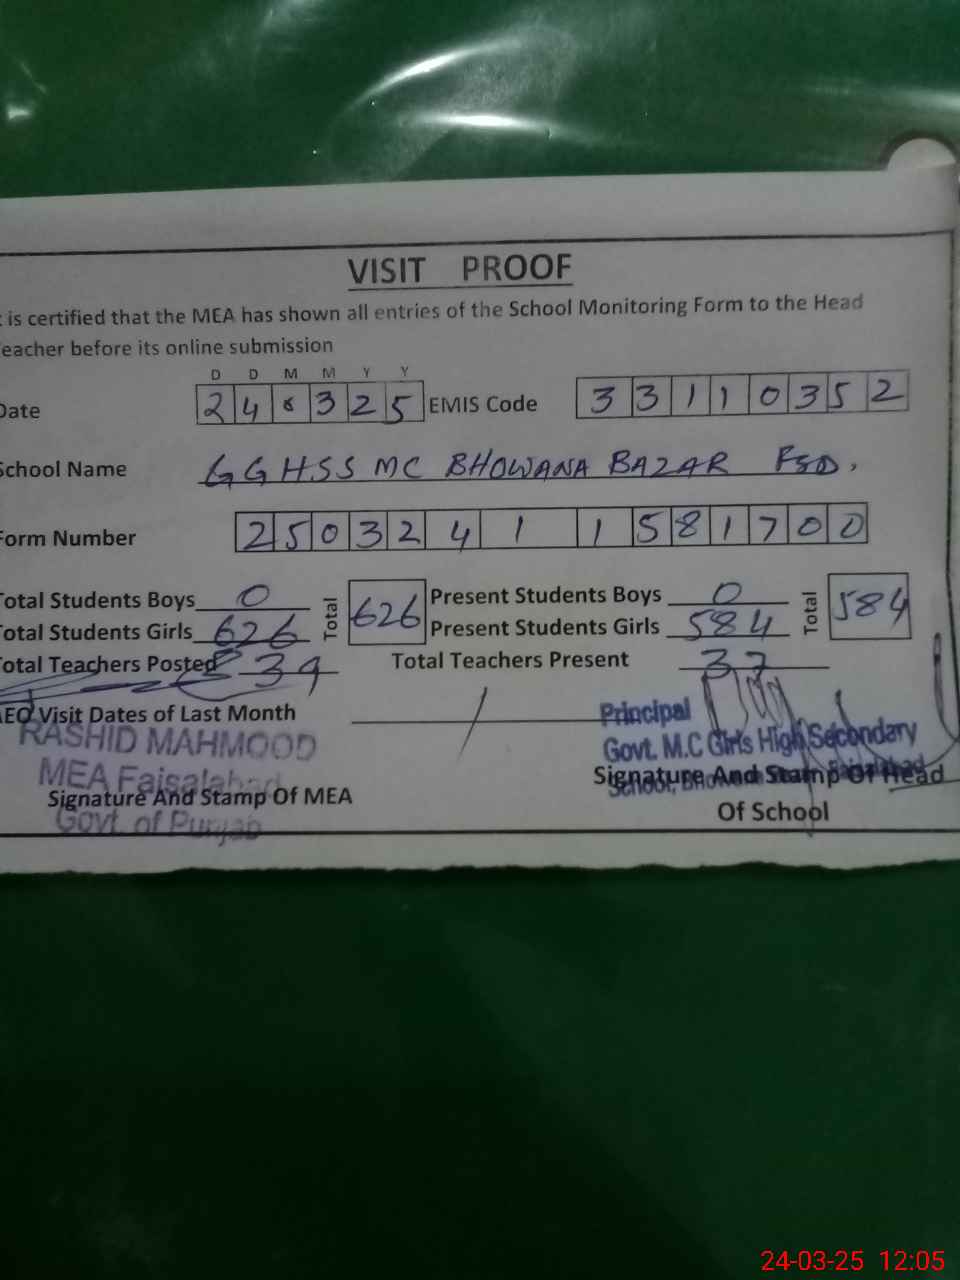 VISIT PROOF
is certified that the MEA has shown all entries of the School Monitoring Form to the Head
eacher before its online submission
D D M M Y Y
Date 24 0325 EMIS Code 33110352
School Name GGHSS MC BHOWANA BAZAR FSD.
Form Number 25032411581700
Total Students Boys 0 Total 626 Present Students Boys 0 Total 584
Total Students Girls 626 Present Students Girls 584
Total Teachers Posted 39 Total Teachers Present 37
AEO Visit Dates of Last Month /
RASHID MAHMOOD
MEA Faisalabad
Signature And Stamp Of MEA
Govt. of Punjab
Principal
Govt. M.C Girls High Secondary
School, Bhowana Faisalabad
Signature And Stamp Of Head
Of School
24-03-25 12:05